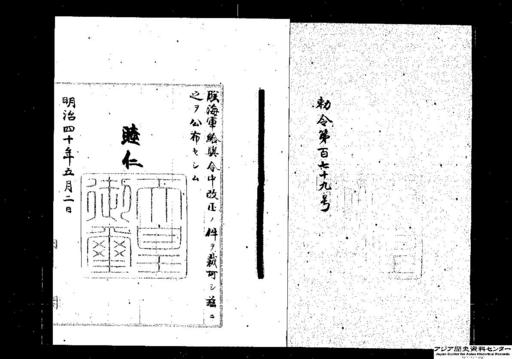 勅令第百七十九号
朕海軍給與令中改正ノ件ヲ裁可シ茲ニ
之ヲ公布セシム
睦仁
天皇
御璽
明治四十年五月二日
アジア歴史資料センター
Japan Center for Asian Historical Records